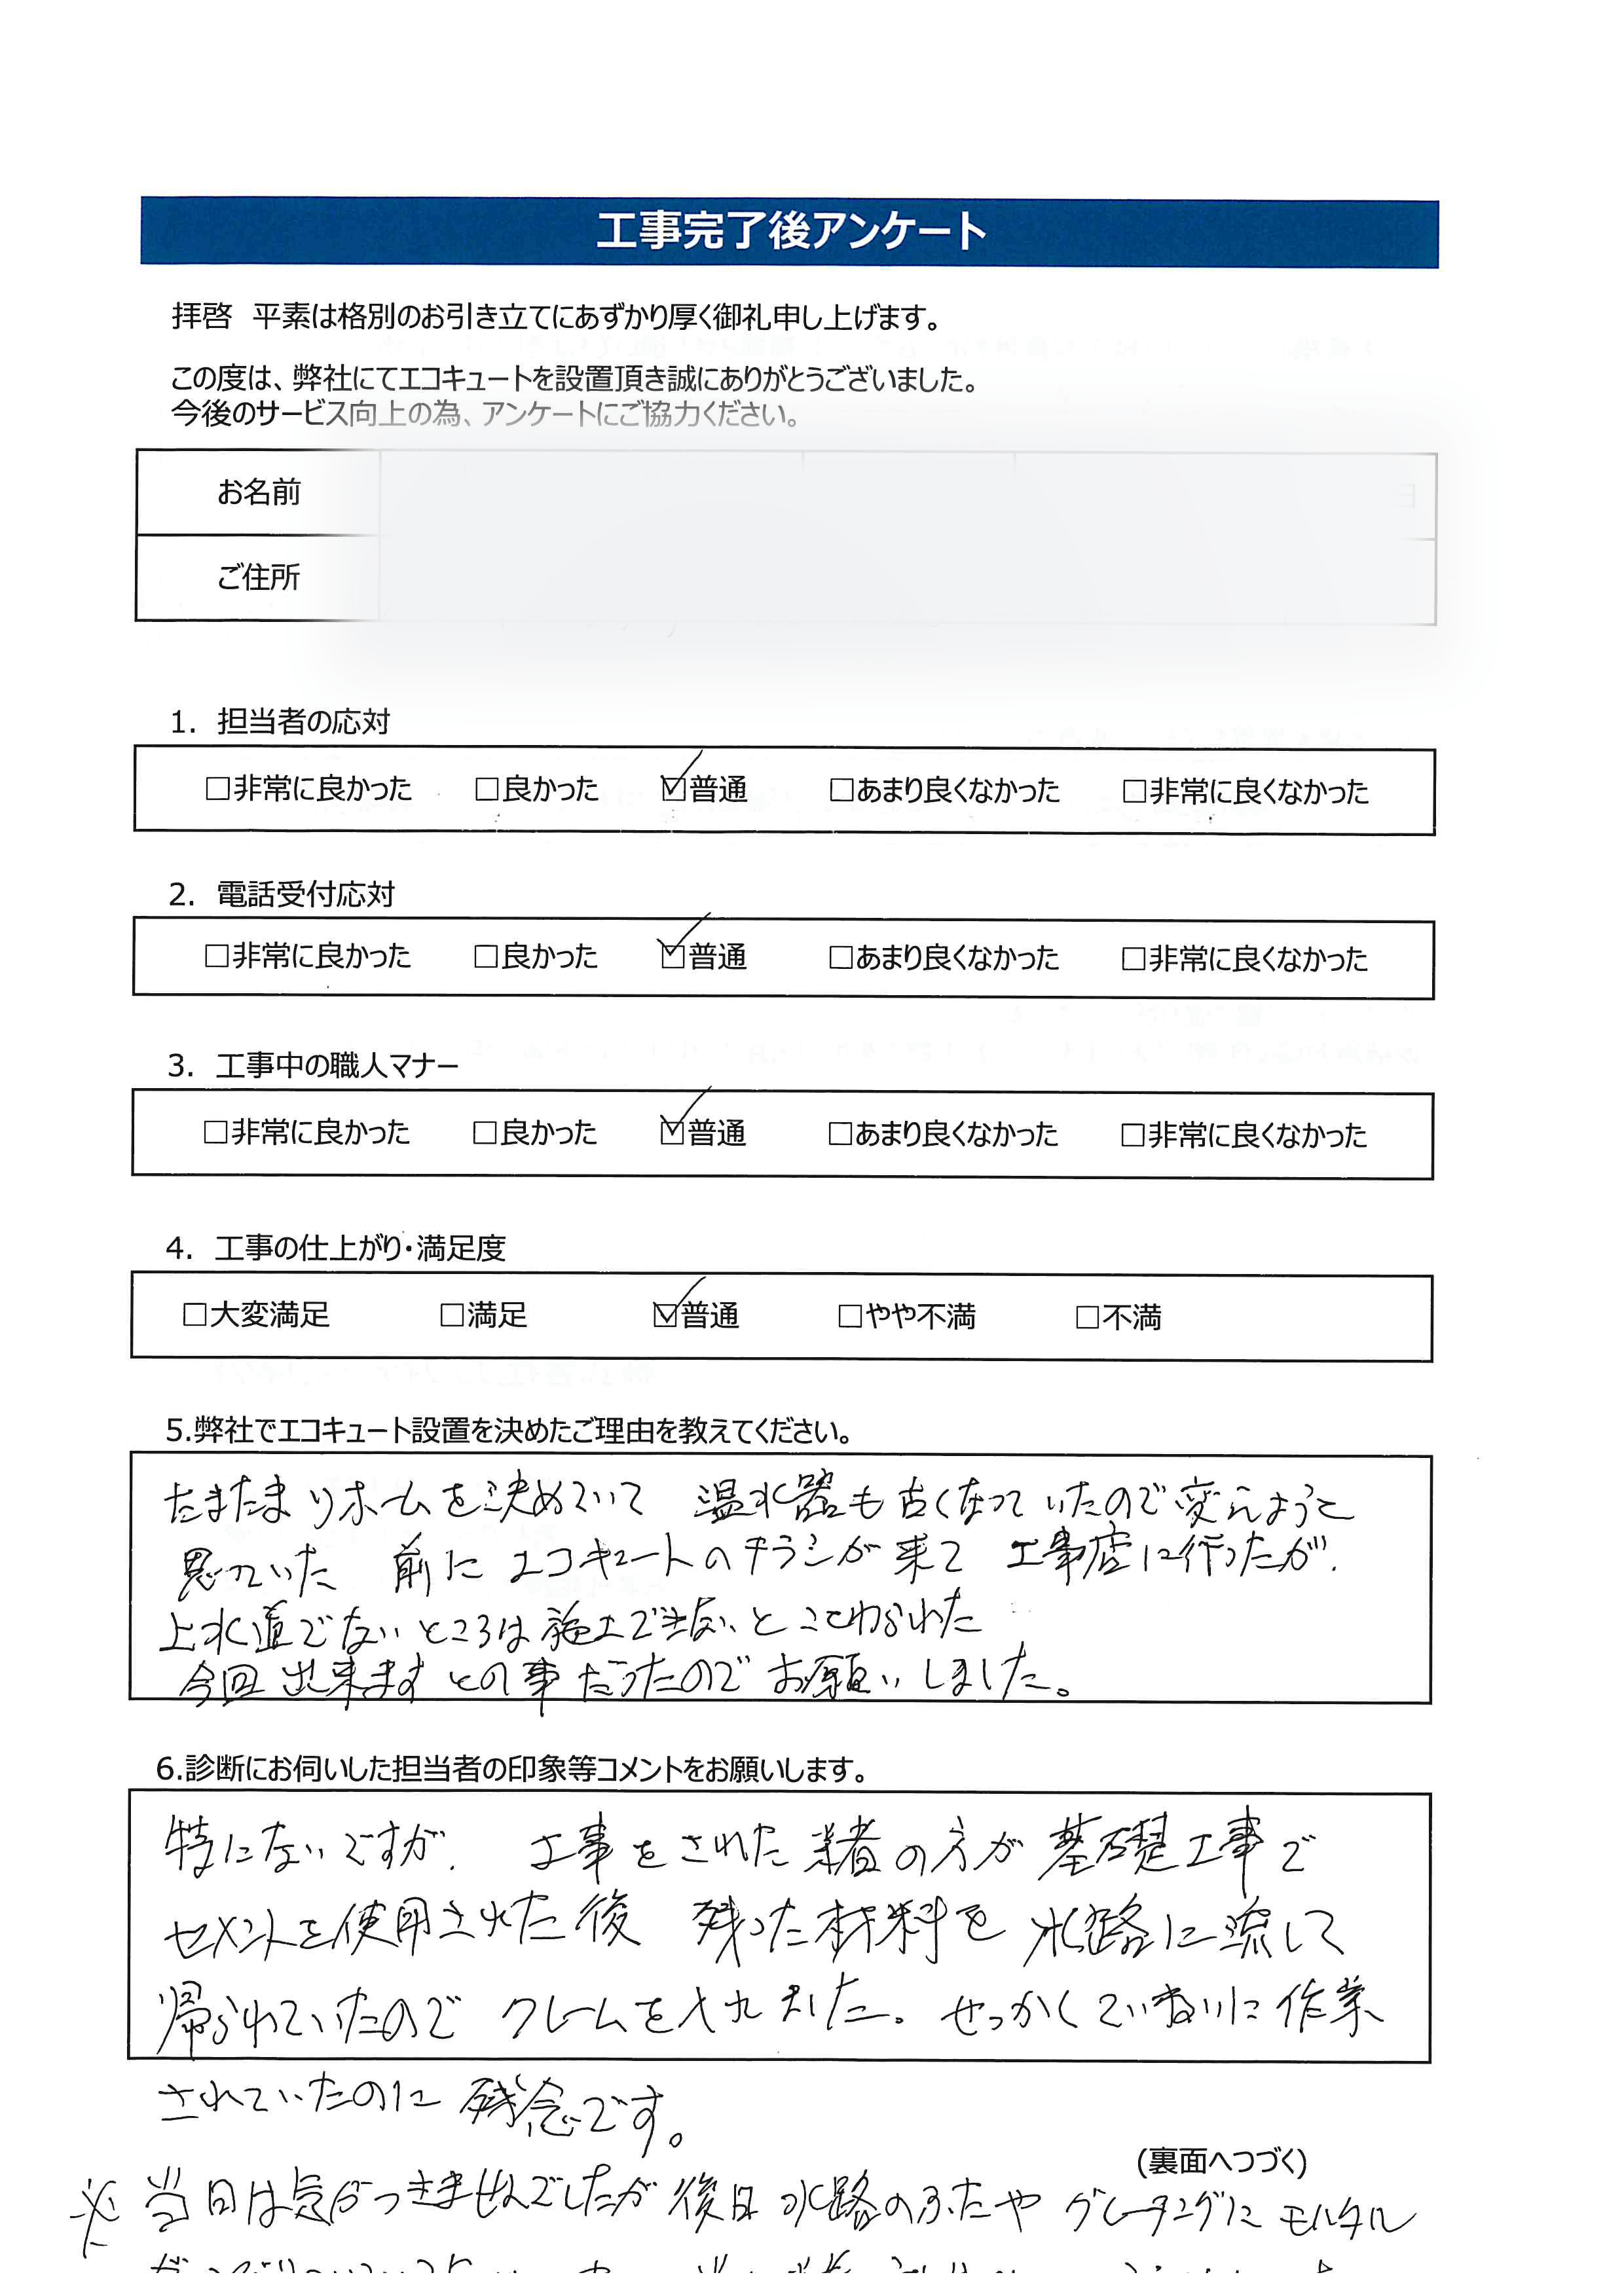 工事完了後アンケート
拝啓　平素は格別のお引き立てにあずかり厚く御礼申し上げます。
この度は、弊社にてエコキュートを設置頂き誠にありがとうございました。
今後のサービス向上の為、アンケートにご協力ください。
お名前
ご住所
1.　担当者の応対
□非常に良かった　□良かった　☑普通　□あまり良くなかった　□非常に良くなかった
2.　電話受付応対
□非常に良かった　□良かった　☑普通　□あまり良くなかった　□非常に良くなかった
3.　工事中の職人マナー
□非常に良かった　□良かった　☑普通　□あまり良くなかった　□非常に良くなかった
4.　工事の仕上がり・満足度
□大変満足　□満足　☑普通　□やや不満　□不満
5.弊社でエコキュート設置を決めたご理由を教えてください。
たまたまリホームを決めていて　温水器も古くなっていたので変えようと
思っていた　前にエコキュートのチラシが来て　工事店に行ったが、
上水道でないところは施工できないと　ことわられた
今回出来ますとの事だったのでお願いしました。
6.診断にお伺いした担当者の印象等コメントをお願いします。
特にないですが、　工事をされた業者の方が基礎工事で
セメントを使用された後　残った材料を水路に流して
帰られていたので　クレームを入れました。せっかくていねいに作業
されていたのに残念です。
(裏面へつづく)
※当日は気がつきませんでしたが後日水路のふたやグレーチングにモルタル